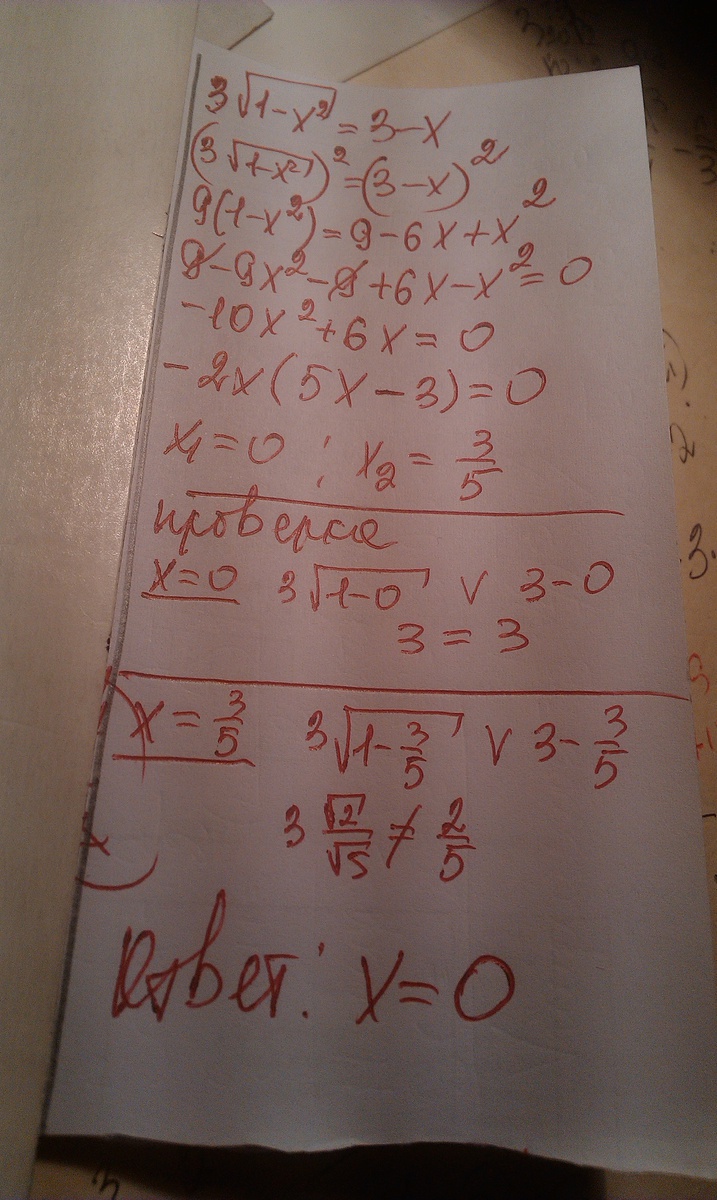 3√(1-x²) = 3-x
(3√(1-x²))² = (3-x)²
9(1-x²) = 9-6x+x²
9-9x²-9+6x-x² = 0
-10x²+6x = 0
-2x(5x-3) = 0
x₁ = 0 ; x₂ = 3/5
проверка
x=0 3√(1-0) ∨ 3-0
3 = 3
x = 3/5 3√(1-3/5) ∨ 3-3/5
3 √2/√5 ≠ 2/5
Ответ: x=0